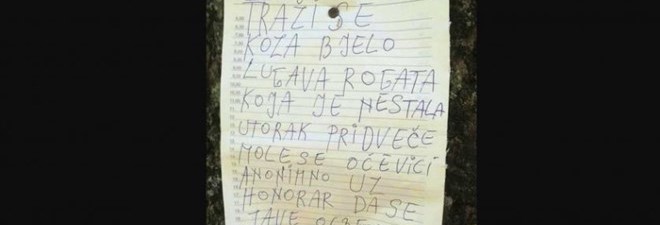 TRAŽI SE
KOZA BJELO
LUGAVA ROGATA
KOJA JE NESTALA
UTORAK PRIDVEČE
MOLE SE OČEVICI
ANONIMNO UZ
HONORAR DA SE
JAVE